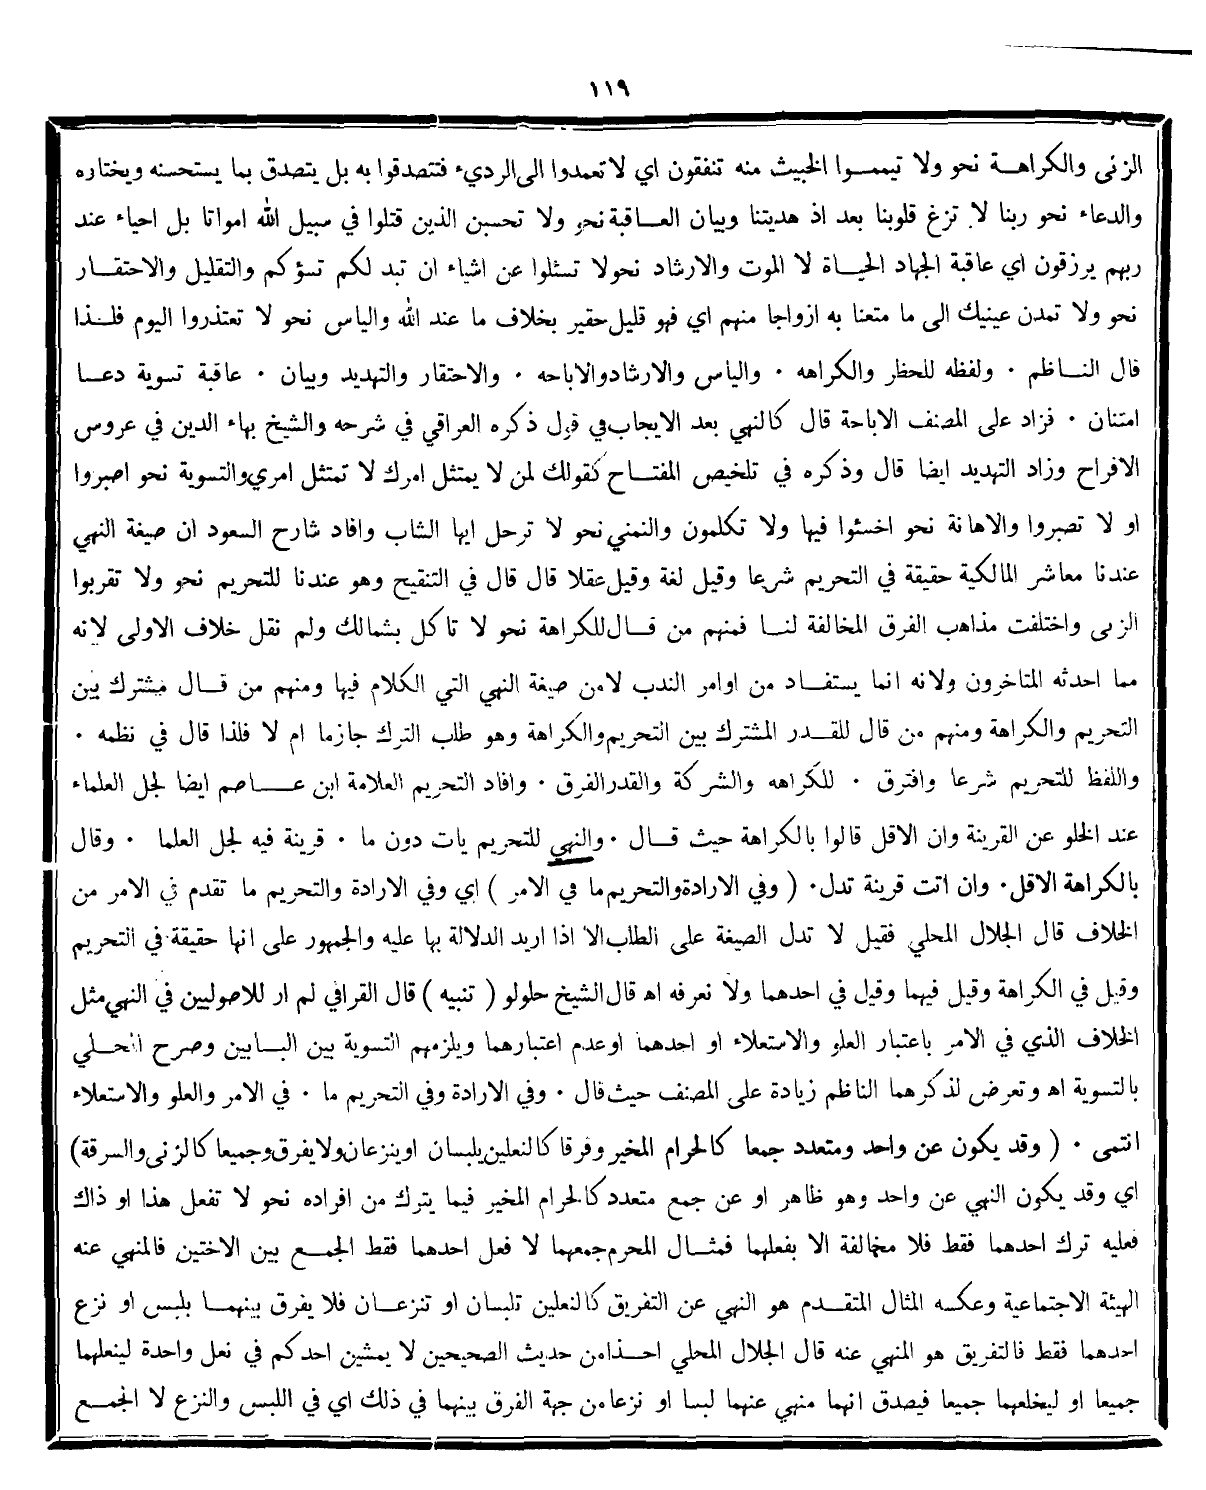 ١١٩
الزنى والكراهة نحو ولا تيمموا الخبيث منه تنفقون اي لا تعمدوا الى الرديء فتتصدقوا به بل يتصدق بما يستحسنه ويختاره
والدعاء نحو ربنا لا تزغ قلوبنا بعد اذ هديتنا وبيان العاقبة نحو ولا تحسبن الذين قتلوا في سبيل الله امواتا بل احياء عند
ربهم يرزقون اي عاقبة الجهاد الحياة لا الموت والارشاد نحو لا تسئلوا عن اشياء ان تبد لكم تسؤكم والتقليل والاحتقار
نحو ولا تمدن عينيك الى ما متعنا به ازواجا منهم اي فهو قليل حقير بخلاف ما عند الله والياس نحو لا تعتذروا اليوم فلذا
قال الناظم ٠ ولفظه للحظر والكراهه ٠ والياس والارشاد والاباحه ٠ والاحتقار والتهديد وبيان ٠ عاقبة تسوية دعا
امتنان ٠ فزاد على المصنف الاباحة قال كالنهي بعد الايجاب في قول ذكره العراقي في شرحه والشيخ بهاء الدين في عروس
الافراح وزاد التهديد ايضا قال وذكره في تلخيص المفتاح كقولك لمن لا يمتثل امرك لا تمتثل امري والتسوية نحو اصبروا
او لا تصبروا والاهانة نحو اخسئوا فيها ولا تكلمون والتمني نحو لا ترحل ايها الشاب وافاد شارح السعود ان صيغة النهي
عندنا معاشر المالكية حقيقة في التحريم شرعا وقيل لغة وقيل عقلا قال قال في التنقيح وهو عندنا للتحريم نحو ولا تقربوا
الزنى واختلفت مذاهب الفرق المخالفة لنا فمنهم من قال للكراهة نحو لا تاكل بشمالك ولم نقل خلاف الاولى لانه
مما احدثه المتاخرون ولانه انما يستفاد من اوامر الندب لا من صيغة النهي التي الكلام فيها ومنهم من قال مشترك بين
التحريم والكراهة ومنهم من قال للقدر المشترك بين التحريم والكراهة وهو طلب الترك جازما ام لا فلذا قال في نظمه ٠
واللفظ للتحريم شرعا وافترق ٠ للكراهه والشركة والقدر الفرق ٠ وافاد التحريم العلامة ابن عاصم ايضا لجل العلماء
عند الخلو عن القرينة وان الاقل قالوا بالكراهة حيث قال ٠ والنهي للتحريم يات دون ما ٠ قرينة فيه لجل العلما ٠ وقال
بالكراهة الاقل ٠ وان اتت قرينة تدل ٠ ( وفي الارادة والتحريم ما في الامر ) اي وفي الارادة والتحريم ما تقدم في الامر من
الخلاف قال الجلال المحلي فقيل لا تدل الصيغة على الطلب الا اذا اريد الدلالة بها عليه والجمهور على انها حقيقة في التحريم
وقيل في الكراهة وقيل فيهما وقيل في احدهما ولا نعرفه اه قال الشيخ حلولو ( تنبيه ) قال القرافي لم ار للاصوليين في النهي مثل
الخلاف الذي في الامر باعتبار العلو والاستعلاء او احدهما او عدم اعتبارهما ويلزمهم التسوية بين البابين وصرح المحلي
بالتسوية اه وتعرض لذكرهما الناظم زيادة على المصنف حيث قال ٠ وفي الارادة وفي التحريم ما ٠ في الامر والعلو والاستعلاء
انتمى ٠ ( وقد يكون عن واحد ومتعدد جمعا كالحرام المخير وفرقا كالنعلين يلبسان او ينزعان ولا يفرق وجميعا كالزنى والسرقة)
اي وقد يكون النهي عن واحد وهو ظاهر او عن جمع متعدد كالحرام المخير فيما يترك من افراده نحو لا تفعل هذا او ذاك
فعليه ترك احدهما فقط فلا مخالفة الا بفعلهما فمثال المحرم جمعهما لا فعل احدهما فقط الجمع بين الاختين فالمنهي عنه
الهيئة الاجتماعية وعكسه المثال المتقدم هو النهي عن التفريق كالنعلين تلبسان او تنزعان فلا يفرق بينهما بلبس او نزع
احدهما فقط فالتفريق هو المنهي عنه قال الجلال المحلي اخذا من حديث الصحيحين لا يمشين احدكم في نعل واحدة لينعلهما
جميعا او ليخلعهما جميعا فيصدق انهما منهي عنهما لبسا او نزعا من جهة الفرق بينهما في ذلك اي في اللبس والنزع لا الجمع